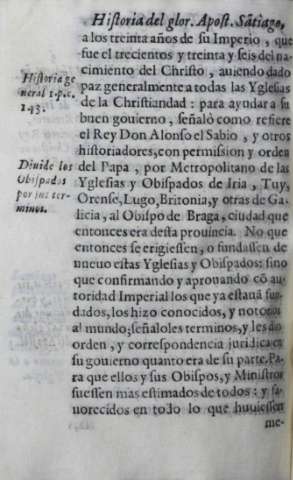 Hiſtoria del glor. Apoſt. Sãtiago,
a los treinta años de ſu Imperio, que
fue el trecientos y treinta y ſeis del na-
cimiento del Chriſto, auiendo dado
paz generalmente a todas las Ygleſias
de la Chriſtiandad: para ayudar a ſu
buen gouierno, ſeñalò como refiere
el Rey Don Alonſo el Sabio, y otros
hiſtoriadores, con permiſſion y orden
del Papa, por Metropolitano de las
Ygleſias y Obiſpados de Iria, Tuy,
Orenſe, Lugo, Britonia, y otras de Ga-
licia, al Obiſpo de Braga, ciudad que
entonces era deſta prouincia. No que
entonces ſe erigieſſen, o fundaſſen de
nueuo eſtas Ygleſias y Obiſpados: ſino
que confirmando y aprouando cõ au-
toridad Imperial los que ya eſtauã fun-
dados, los hizo conocidos, y notorios
al mundo; ſeñaloles terminos, y les dio
orden, y correſpondencia juridica en
ſu gouierno quanto era de ſu parte. Pa-
ra que ellos y ſus Obiſpos, y Miniſtros
fueſſen mas eſtimados de todos: y fa-
uorecidos en todo lo que huuieſſen
me-
Hiſtoria ge
neral 1. p. c.
143.
Diuide los
Obiſpados
por ſus ter-
minos.